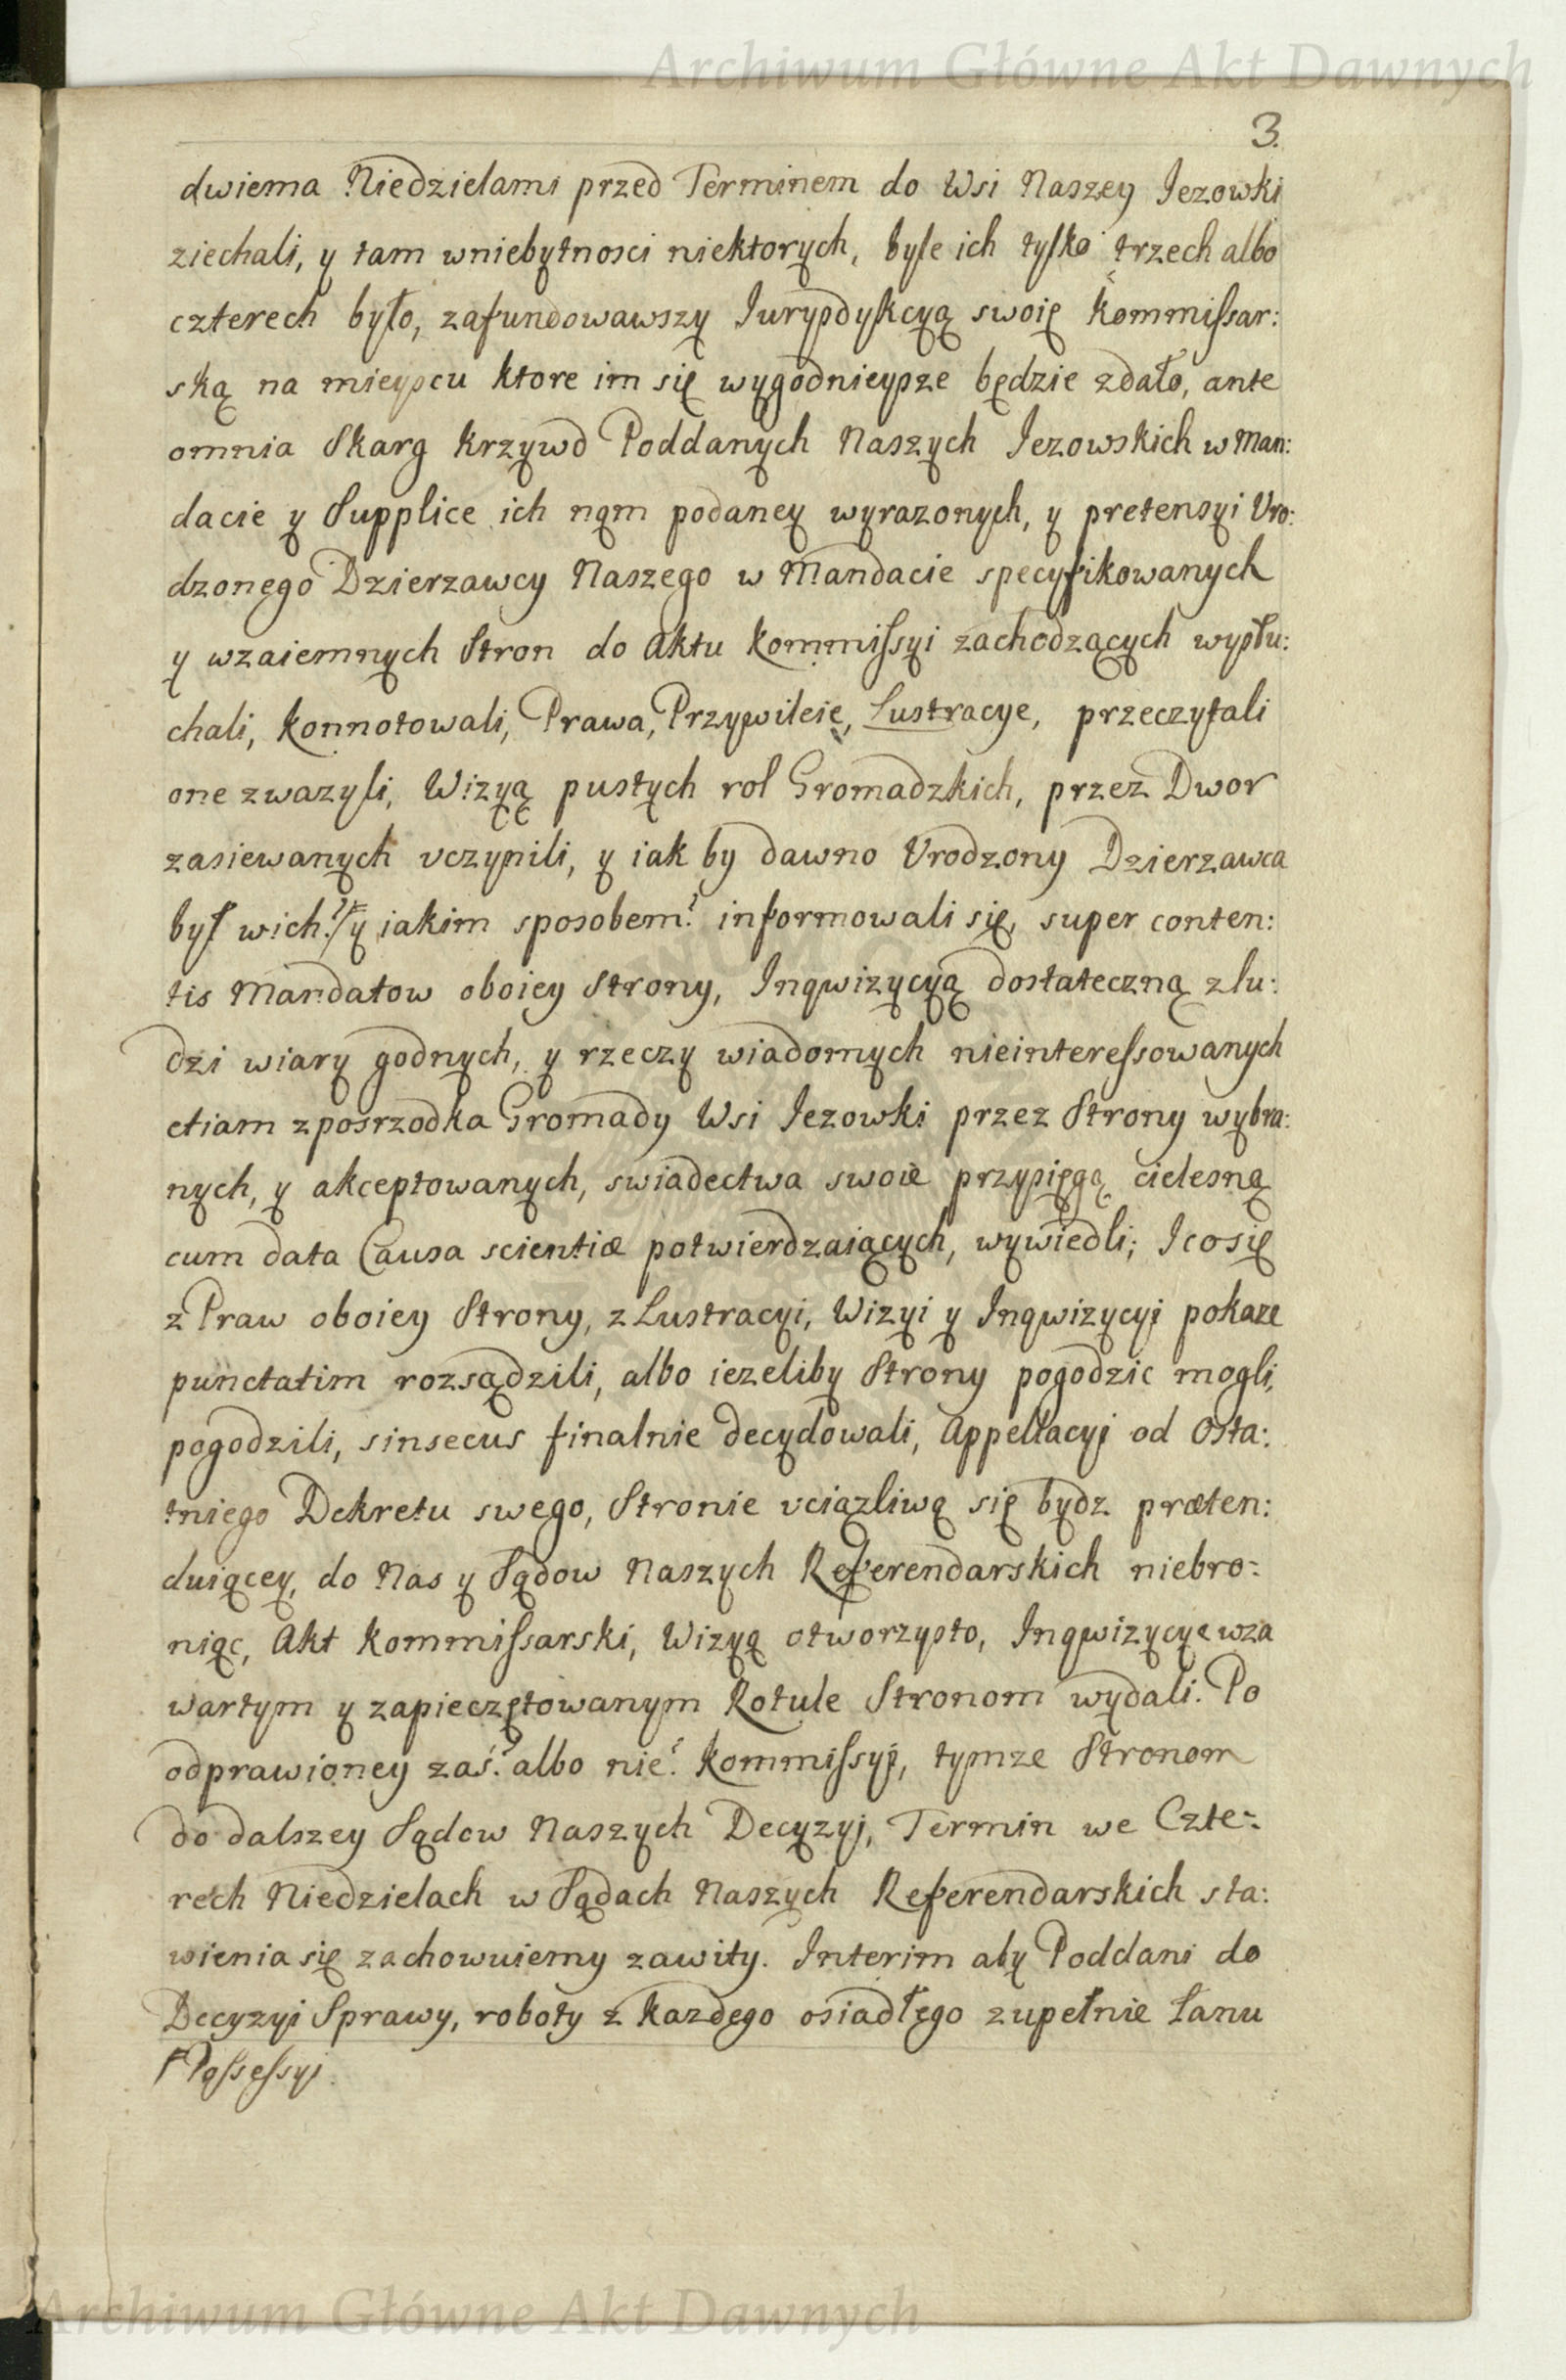 Archiwum Główne Akt Dawnych
3.
dwiema Niedzielami przed Terminem do Wsi Naszey Jezowki
ziechali, y tam wniebytnosci niektorych, byle ich tylko trzech albo
czterech było, zafundowawszy Jurysdykcyą swoię Kommissar:
ską na mieyscu ktore im się wygodnieysze będzie zdało, ante
omnia Skarg Krzywd Poddanych Naszych Jezowskich w Man:
dacie y Supplice ich nam podaney wyrazonych, y pretensyi Uro:
dzonego Dzierzawcy Naszego w Mandacie specyfikowanych
y wzaiemnych Stron do Aktu Kommissyi zachodzących wysłu:
chali, konnotowali, Prawa, Przywileie, Lustracye, przeczytali
one zwazyli, Wizyą pustych rol Gromadzkich, przez Dwor
zasiewanych vczynili, y iak by dawno Vrodzony Dzierzawca
był wich? /: y iakim sposobem? informowali się, super conten:
tis Mandatow oboiey Strony, Inqwizycyą dostateczną zlu:
dzi wiary godnych, y rzeczy wiadomych nieinteressowanych
etiam zposrzodka Gromady Wsi Jezowki przez Strony wybra:
nych, y akceptowanych, swiadectwa swoie przysięgą cielesną
cum data Causa scientiæ potwierdzaiących, wywiedli; Icosię
z Praw oboiey Strony, z Lustracyi, Wizyi y Inqwizycyi pokaze
punctatim rozsądzili, albo iezeliby Strony pogodzic mogli,
pogodzili, sinsecus finalnie decydowali, Appellacyi od Osta:
tniego Dekretu swego, Stronie vciązliwą się bydz præten:
duiącey, do Nas y Sądow Naszych Referendarskich niebro:
niąc, Akt Kommissarski, Wizyą otworzysto, Inqwizycye wza
wartym y zapieczętowanym Rotule Stronom wydali. Po
odprawioney zaś? albo nie? Kommissyi, tymze Stronom
do dalszey Sądow Naszych Decyzyi, Termin we Czte:
rech Niedzielach w Sądach Naszych Referendarskich sta:
wienia się zachowuiemy zawity. Interim aby Poddani do
Decyzyi Sprawy, roboty z kazdego osiadłego zupełnie Łanu
Possessyi.
Archiwum Główne Akt Dawnych